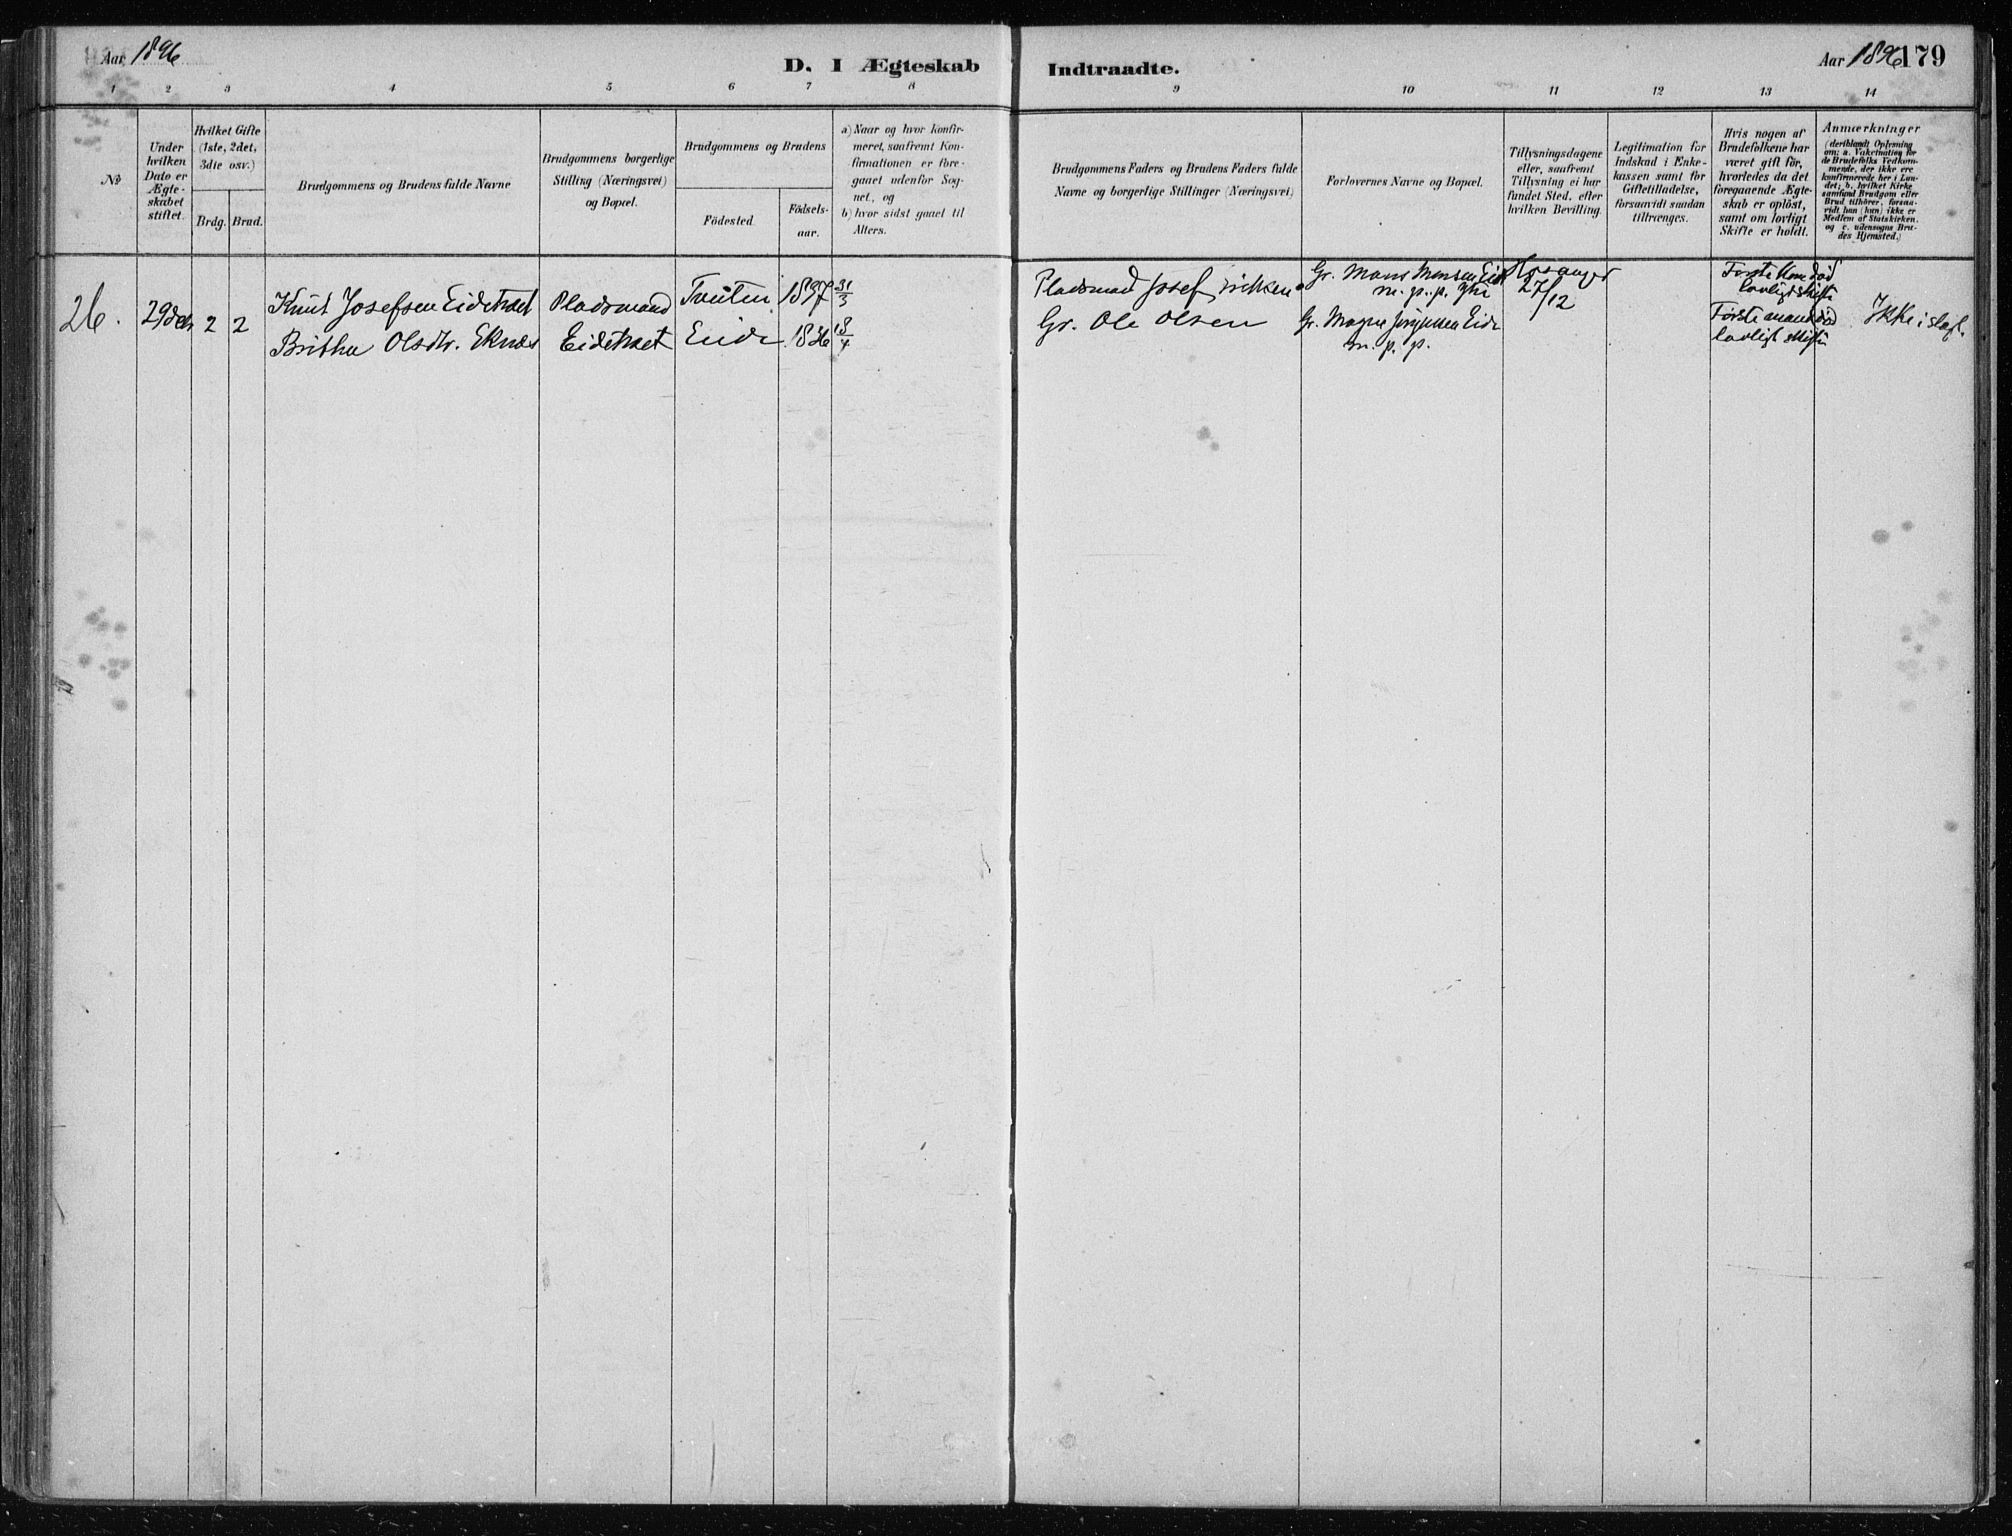 Aar 1896
D. I Ægteskab
Indtraadte.
Aar 1896 179
1 2 3 4 5 6 7 8 9 10 11 12 13 14
No
Under hvilken Dato er Ægte-skabet stiftet.
Hvilket Gifte (1ste, 2det, 3die osv.)
Brdg. Brud.
Brudgommens og Brudens fulde Navne
Brudgommens borgerlige Stilling (Næringsvei) og Bopæl.
Brudgommens og Brudens
Födested.
Födsels-aar.
a) Naar og hvor Konfir-meret, saafremt Kon-firmationen er fore-gaaet udenfor Sog-net, og
b) hvor sidst gaaet til Alters.
Brudgommens Faders og Brudens Faders fulde Navne og borgerlige Stillinger (Næringsvei)
Forlovernes Navne og Bopæl.
Tillysningsdagene eller, saafremt Tillysning ei har fundet Sted, efter hvilken Bevilling.
Legitimation for Indskud i Enke-kassen samt for Giftetilladelse, forsaavidt saadan tiltrænges.
Hvis nogen af Brudefolkene har været gift för, hvorledes da det foregaaende Ægte-skab er oplöst, samt om lovligt Skifte er holdt.
Anmærkninger (deriblandt Oplysning om: a. Vakcination for de Brudefolks Vedkom-mende, der ikke ere konfirmerede her i Lan-det; b. hvilket Kirke-samfund Brudgom eller Brud tilhörer, forsaa-vidt han (hun) ikke er Medlem af Statskirken, og c. udensogns Bru-des Hjemsted.)
26. 29 dec 2 2
Knut Josefsen Eidetræet Pladsmand 31/3
Britha Olsdtr. Eknæs Eidetræet Eide 1836 13/4
Pladsmand Josef
Gr. Ole Olsen
Gr. Mons Monsen Eide
m. p. p.
Gr. Magne Eide
m. p. p.
27/12
Første Kone død
lovligt skifte
Første mand død
lovligt skifte
Ikke i slegt.